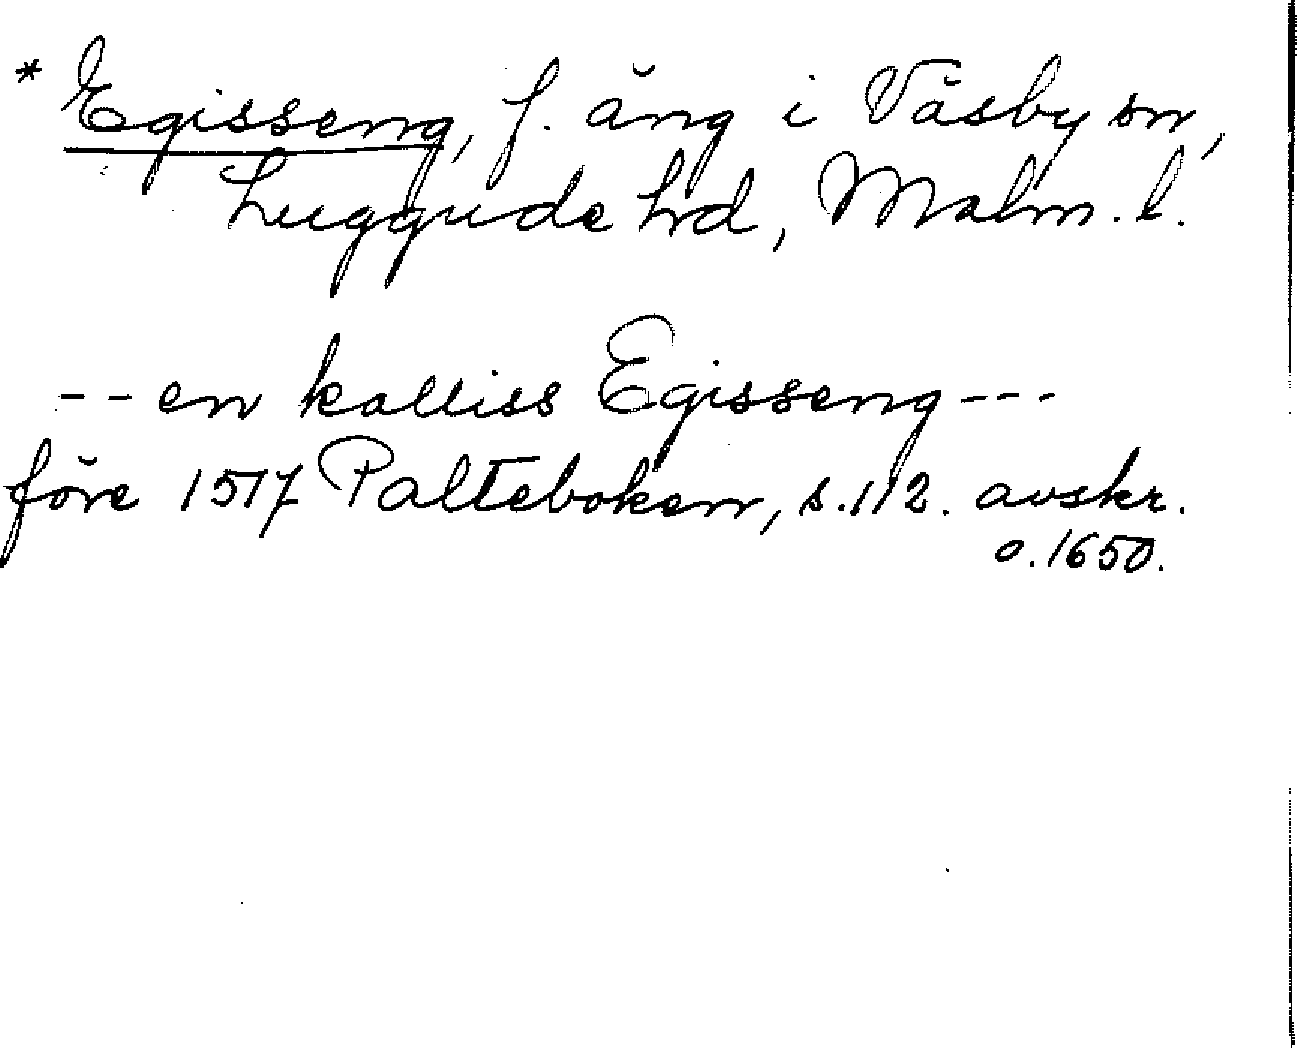 * Egisseng, f. äng i Väsby sn,
Luggude hd, Malm. l.
-- en kalliss Egisseng ---
före 1517 Palteboken, s. 112. avskr.
o. 1650.